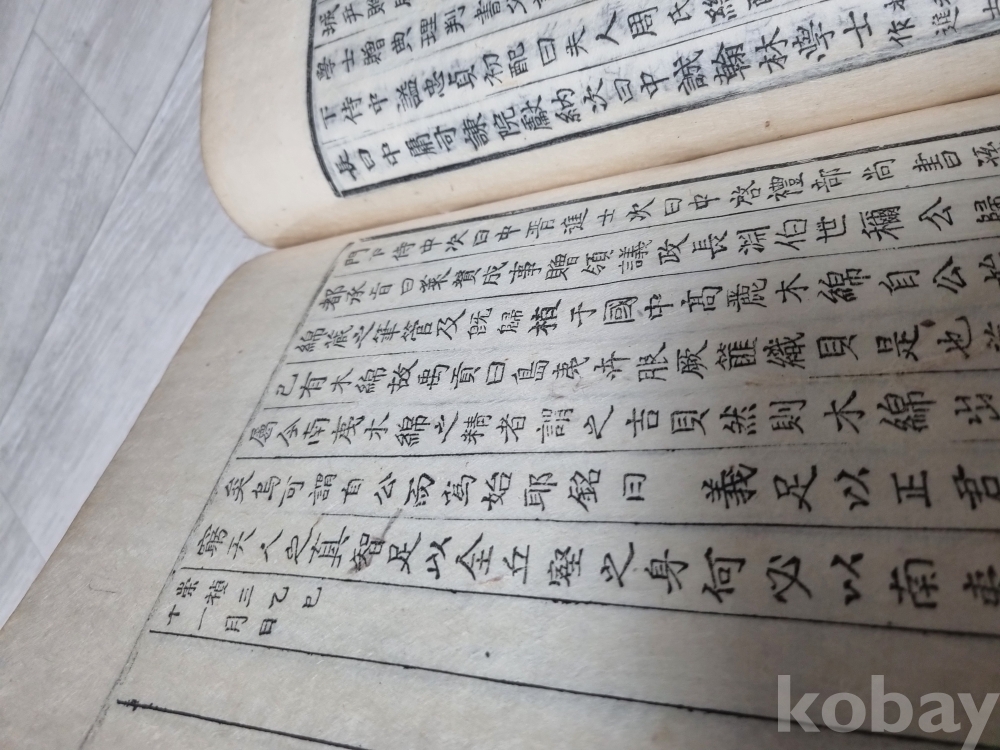 學士贈典理判書父
下侍中諡忠貞初配曰夫人周氏
長曰中庸司諫院獻納次曰中誠翰林學士
門下侍中次曰中晋進士次曰中啓禮部尚書孫
都承旨曰萊贊成事贈領議政長淵伯世稱公歸
綿藏之筆管及既歸植子國中高麗木綿自公始
已有木綿故禹貢曰島夷卉服厥篚織貝是也
屬今南夷木綿之精者謂之吉貝然則木綿出
矣烏可謂自公而爲始耶銘曰 義足以正君
窮天人也其智足以全丘壑之身何必以南
崇禎三乙巳
十一月 日
kobay